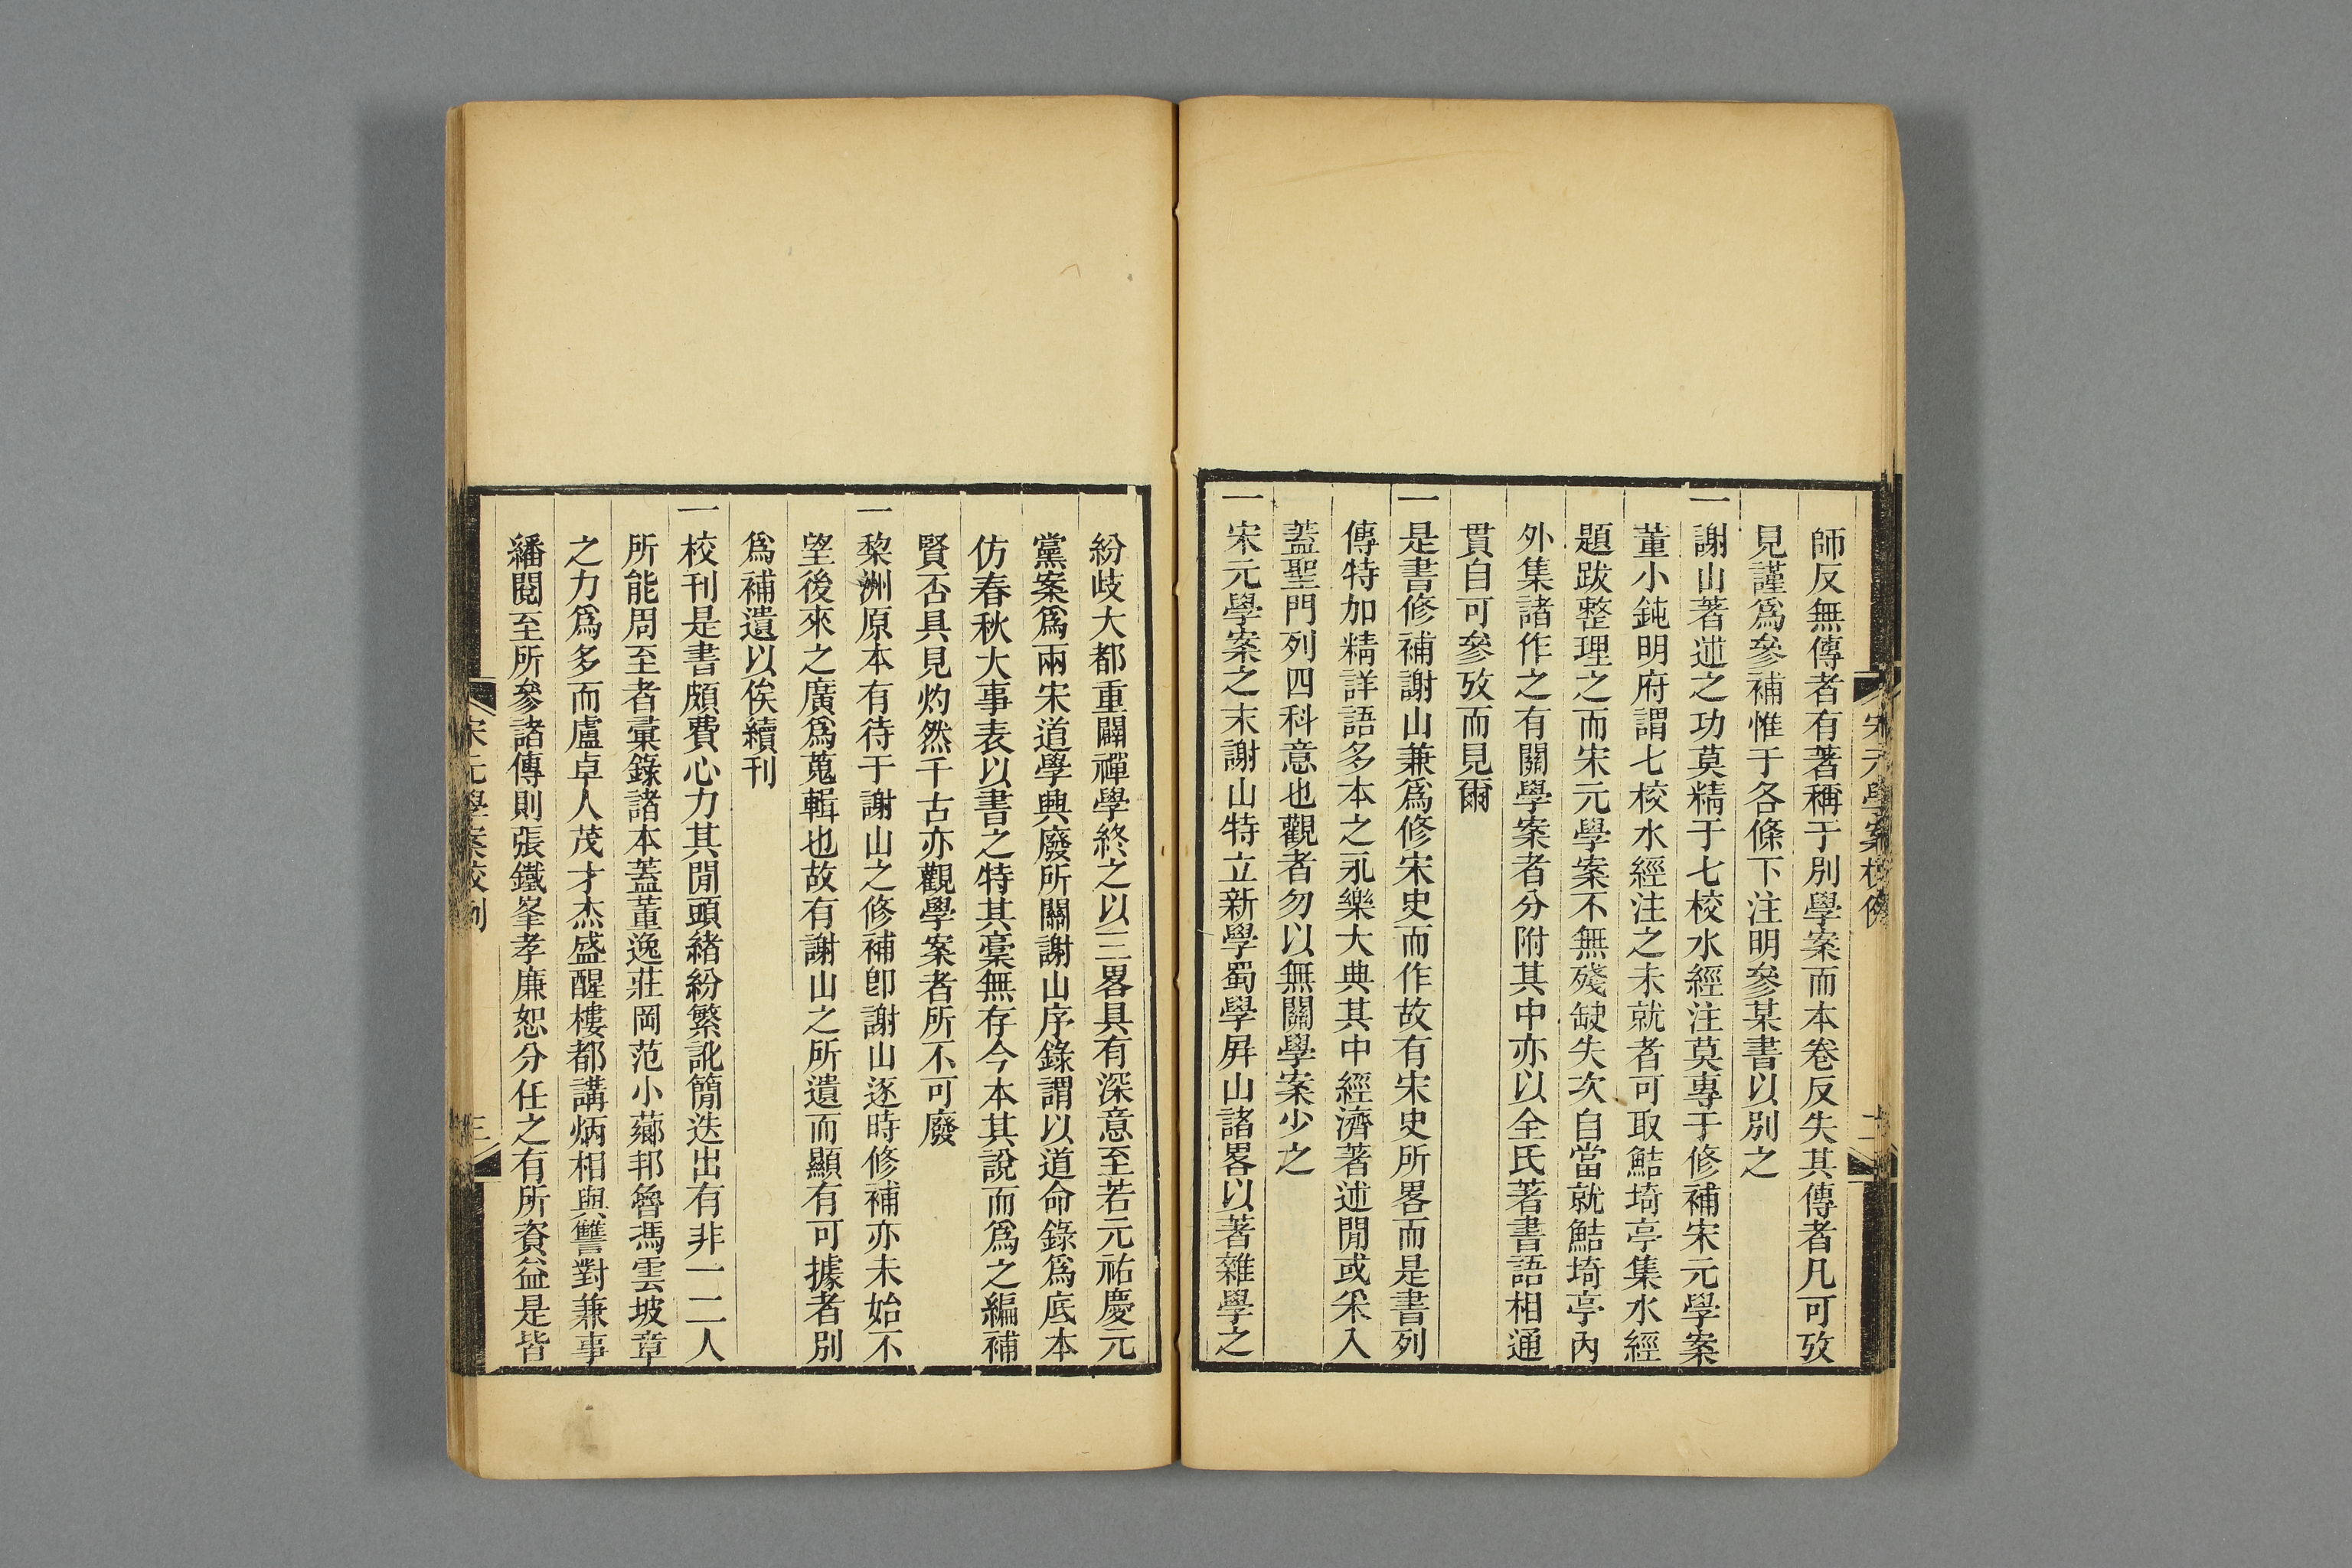 師反無傳者有著稱于別學案而本卷反失其傳者凡可攷
見謹爲參補惟于各條下注明參某書以別之
一謝山著述之功莫精于七校水經注莫專于修補宋元學案
董小鈍明府謂七校水經注之未就者可取鮚埼亭集水經
題跋整理之而宋元學案不無殘缺失次自當就鮚埼亭內
外集諸作之有關學案者分附其中亦以全氏著書語相通
貫自可參攷而見爾
一是書修補謝山兼爲修宋史而作故有宋史所畧而是書列
傳特加精詳語多本之永樂大典其中經濟著述閒或采入
蓋聖門列四科意也觀者勿以無關學案少之
一宋元學案之末謝山特立新學蜀學屛山諸畧以著雜學之
紛歧大都重闢禪學終之以三畧具有深意至若元祐慶元
黨案爲兩宋道學興廢所關謝山序錄謂以道命錄爲底本
仿春秋大事表以書之特其稾無存今本其說而爲之編補
賢否具見灼然千古亦觀學案者所不可廢
一黎洲原本有待于謝山之修補卽謝山逐時修補亦未始不
望後來之廣爲蒐輯也故有謝山之所遺而顯有可據者別
爲補遺以俟續刊
一校刊是書頗費心力其閒頭緖紛繁訛簡迭出有非一二人
所能周至者彚錄諸本蓋董逸莊岡范小薌邦魯馮雲坡章
之力爲多而盧卓人茂才杰盛醒樓都講炳相與讐對兼事
繙閱至所參諸傳則張鐵峯孝廉恕分任之有所資益是皆
宋元學案校例
三